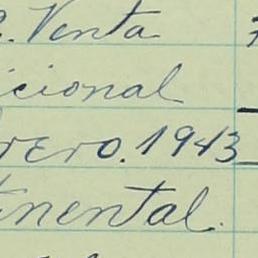 Venta
icional
rero. 1943
inental.